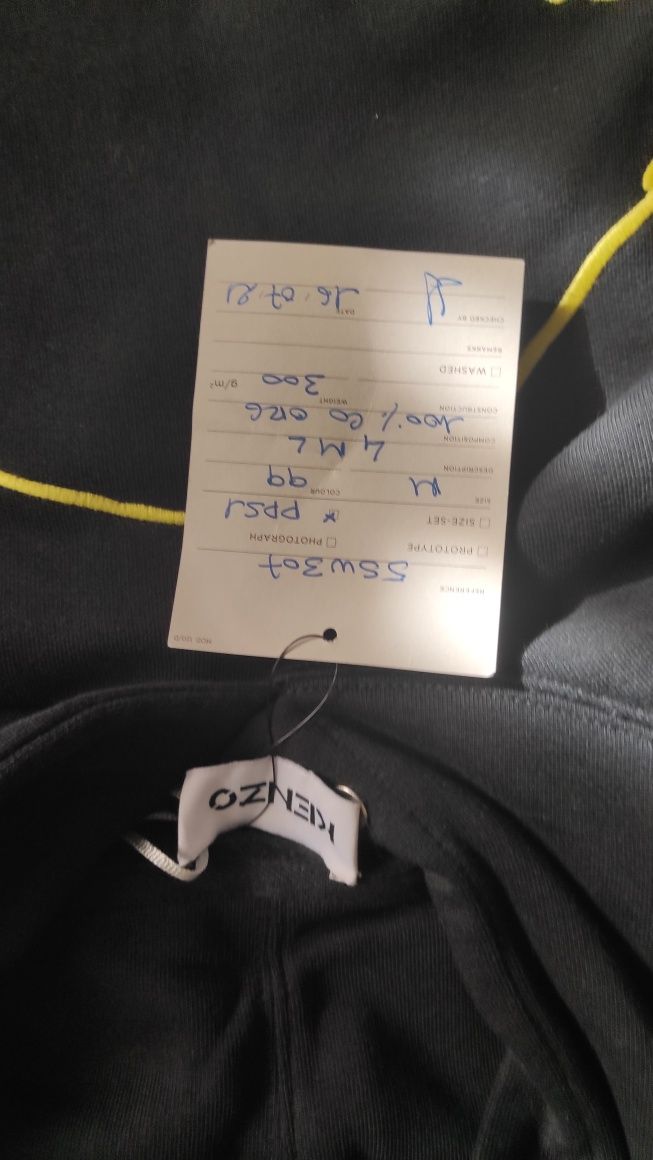 MOD. 120/D
REFERENCE 5SW307
PROTOTYPE PHOTOGRAPH
SIZE-SET PPS1
SIZE M COLOUR 99
DESCRIPTION
COMPOSITION 4ML
CONSTRUCTION 100% CO ORG
WEIGHT 300 g/m²
WASHED
REMARKS
CHECKED BY DATE 26.07.21
KENZO